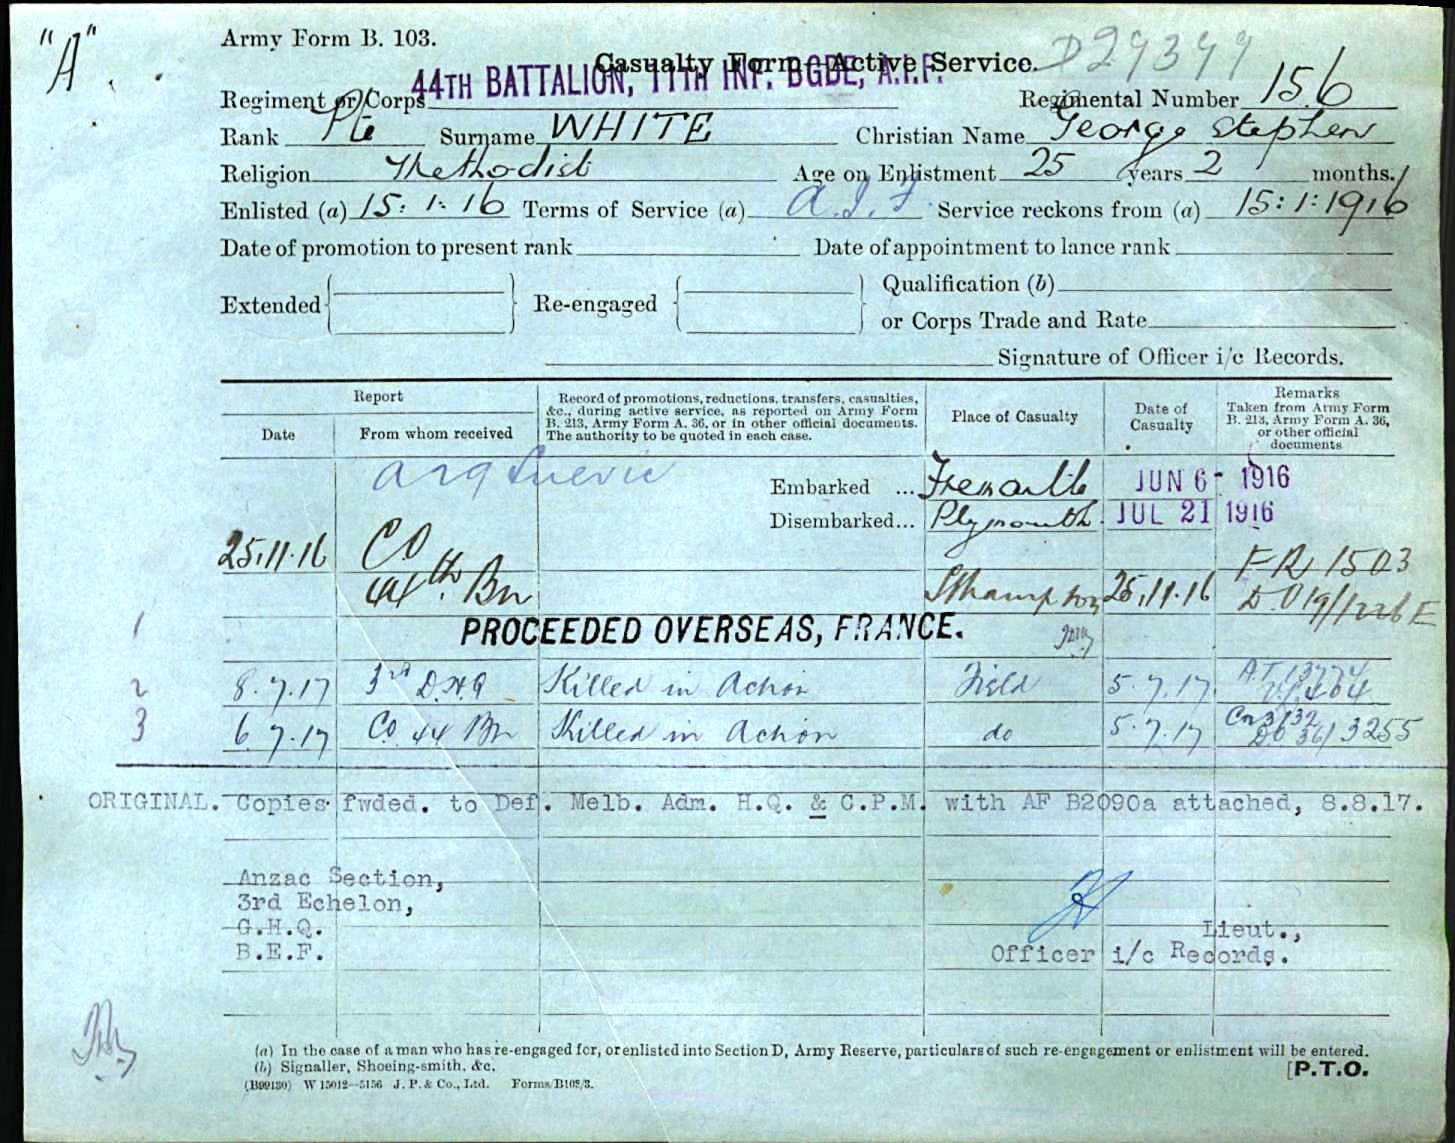 "A".
Army Form B. 103.
Casualty Form—Active Service.
D29399
44TH BATTALION, 11TH INF. BGDE, A.I.F.
Regiment or Corps Regimental Number 156
Rank Pte Surname WHITE Christian Name George Stephen
Religion Methodist Age on Enlistment 25 years 2 months.
Enlisted (a) 15:1:16 Terms of Service (a) A.I.F. Service reckons from (a) 15:1:1916
Date of promotion to present rank Date of appointment to lance rank
Extended Re-engaged Qualification (b)
or Corps Trade and Rate
Signature of Officer i/c Records.
Report
Date From whom received
Record of promotions, reductions, transfers, casualties,
&c., during active service, as reported on Army Form
B. 213, Army Form A. 36, or in other official documents.
The authority to be quoted in each case.
Place of Casualty
Date of
Casualty
Remarks
Taken from Army Form
B. 213, Army Form A. 36,
or other official
documents
Embarked ... Fremantle JUN 6- 1916
Disembarked... Plymouth JUL 21 1916
25.11.16 CO
44th Bn S'thampton 25.11.16 FR 1503
1 PROCEEDED OVERSEAS, FRANCE.
2 8.7.17 3rd DHQ Killed in Action Field 5.7.17
3 6.7.17 CO 44 Bn Killed in Action do 5.7.17 3255
ORIGINAL. Copies fwded. to Def. Melb. Adm. H.Q. & C.P.M. with AF B2090a attached, 8.8.17.
Anzac Section,
3rd Echelon,
G.H.Q.
B.E.F.
Lieut.,
Officer i/c Records.
(a) In the case of a man who has re-engaged for, or enlisted into Section D, Army Reserve, particulars of such re-engagement or enlistment will be entered.
(b) Signaller, Shoeing-smith, &c.
(B99130) W 15012—5156 J. P. & Co., Ltd. Forms/B103/3.
[P.T.O.